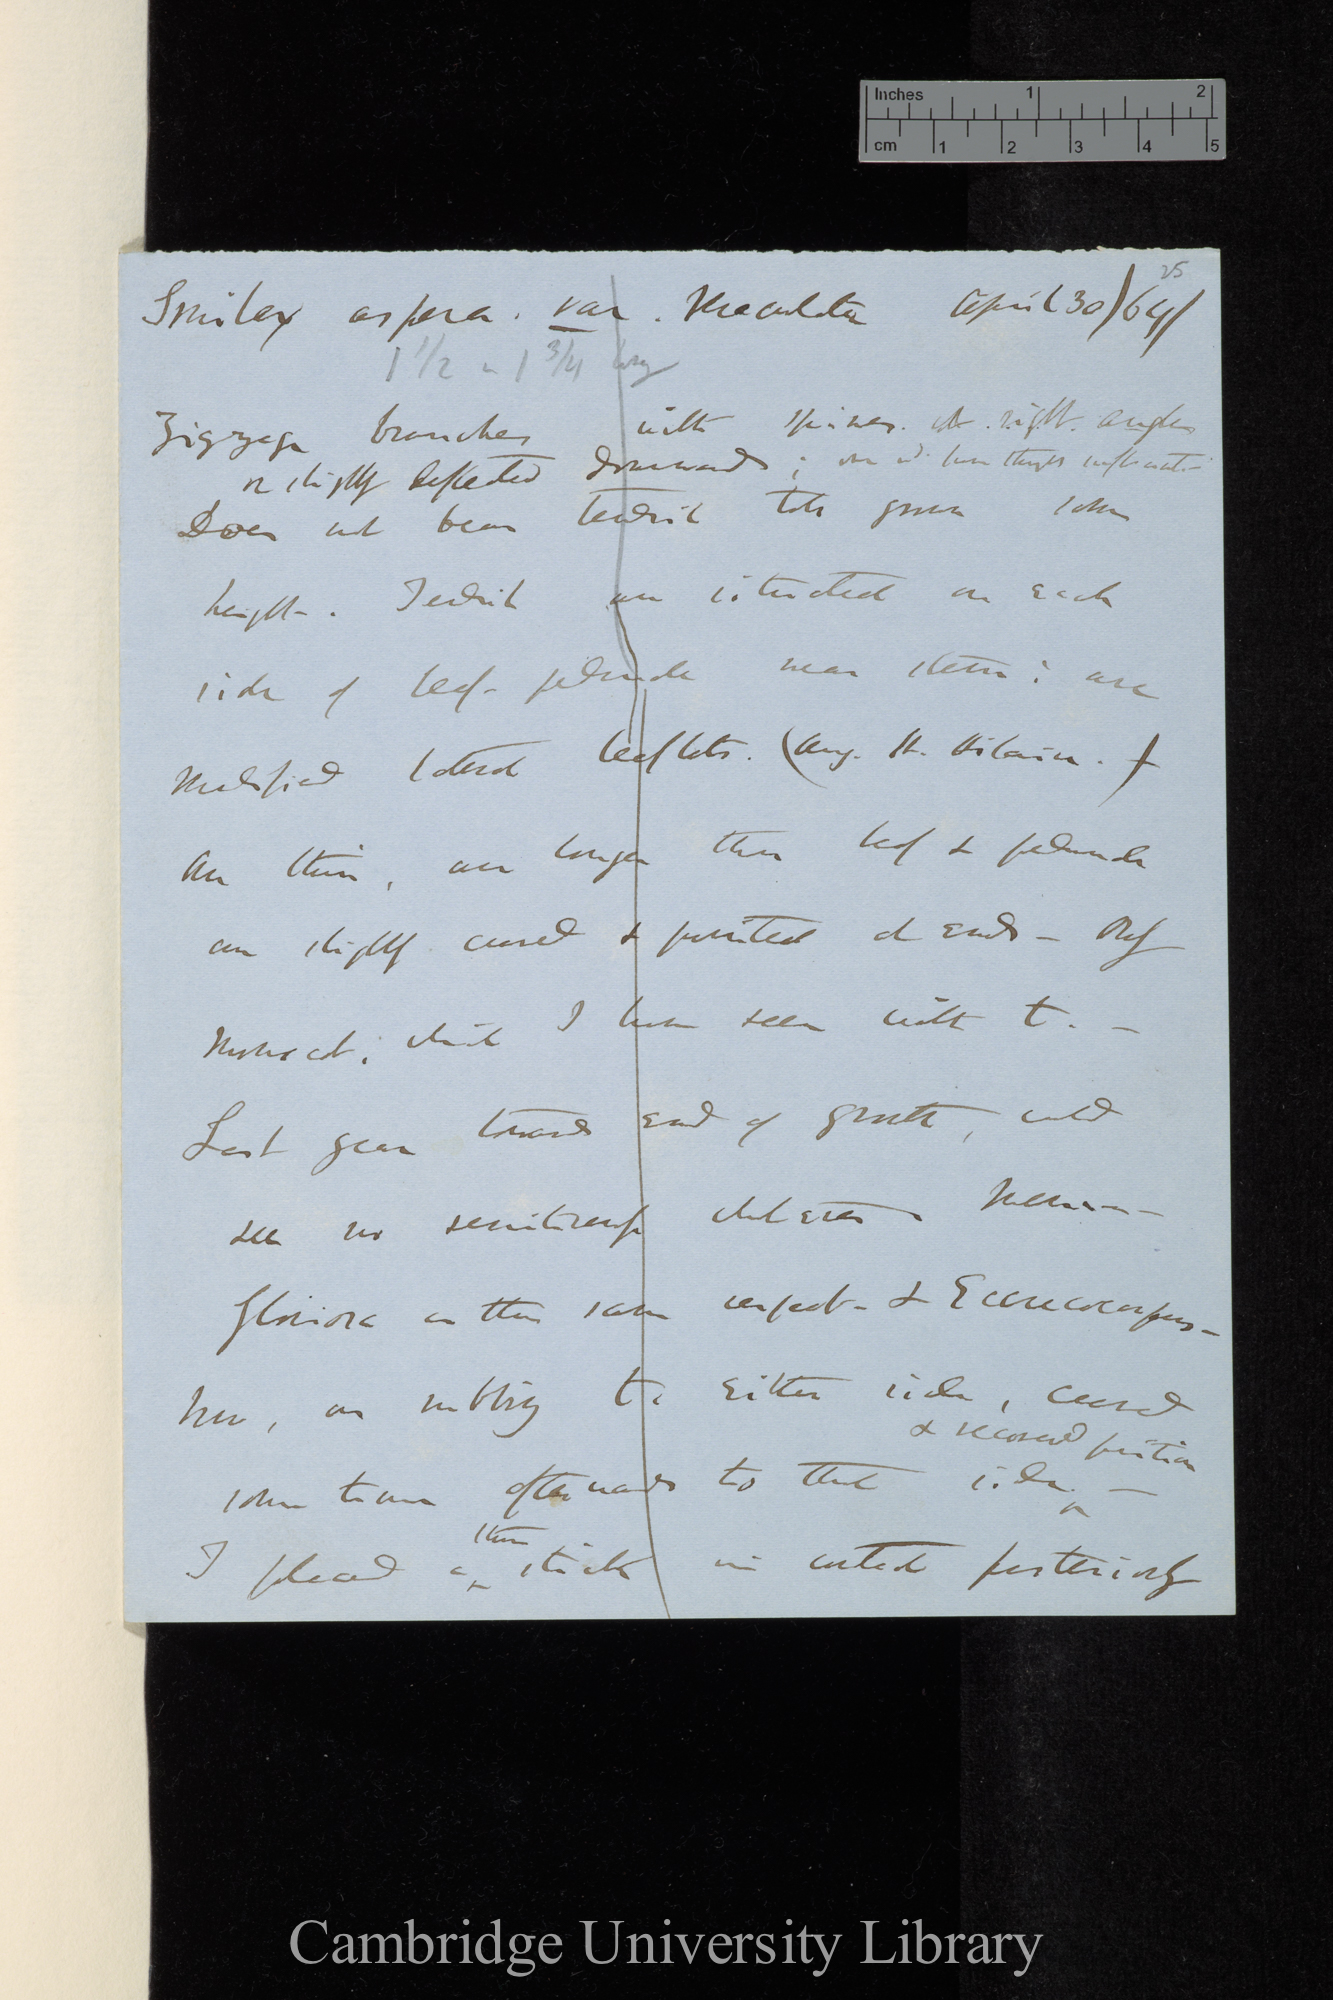 Inches 1 2
cm 1 2 3 4 5
25
Smilax aspera . var . maculata April 30/64/
1 1/2 – 1 3/4 long
Zigzag branches with spines at right angles
or slightly deflected downwards ;
Does not bear tendril till grown some
height - . Tendrils are situated on each
side of leaf - peduncle near stem : are
modified lateral leaflets. (Aug. St. Hilaire .)
are thin, are longer than leaf & peduncle
are slightly curved & pointed at ends –
which I have seen with T. –
Last year towards end of growth , could
see no sensitiveness whatever .
Gloriosa in the same respect - & Eccremocarpus –
Now, on rubbing T. either side, curved
& recovered position
some time afterwards to that side. –
thin
I placed a stick in contact posteriorly
Cambridge University Library